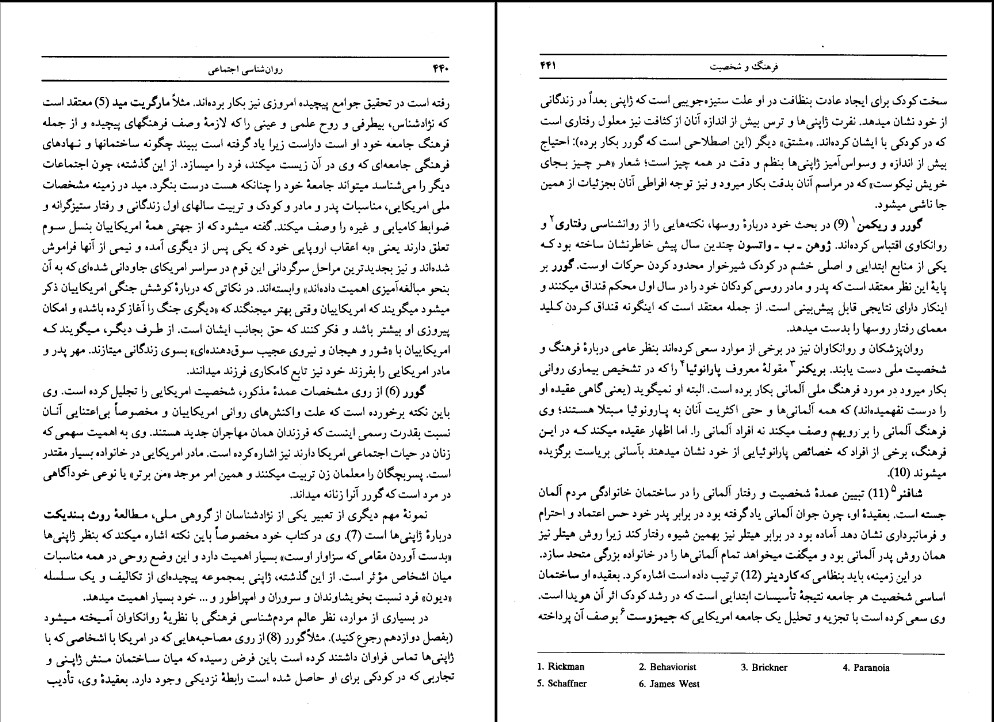 ۴۴۰ روان‌شناسی اجتماعی
رفته است در تحقیق جوامع پیچیده امروزی نیز بکار برده‌اند. مثلاً مارگریت مید (5) معتقد است
که نژادشناس، بیطرفی و روح علمی و عینی را که لازمهٔ وصف فرهنگهای پیچیده و از جمله
فرهنگ جامعه خود او است داراست زیرا یاد گرفته است ببیند چگونه ساختمانها و نهادهای
فرهنگی جامعه‌ای که وی در آن زیست میکند، فرد را میسازد. از این گذشته، چون اجتماعات
دیگر را می‌شناسد میتواند جامعهٔ خود را چنانکه هست درست بنگرد. مید در زمینه مشخصات
ملی امریکایی، مناسبات پدر و مادر و کودک و تربیت سالهای اول زندگانی و رفتار ستیزگرانه و
ضوابط کامیابی و غیره را وصف میکند. گفته میشود که از جهتی همهٔ امریکاییان بنسل سوم
تعلق دارند یعنی «به اعقاب اروپایی خود که یکی پس از دیگری آمده و نیمی از آنها فراموش
شده‌اند و نیز بجدیدترین مراحل سرگردانی این قوم در سراسر امریکای جاودانی شده‌ای که به آن
بنحو مبالغه‌آمیزی اهمیت داده‌اند» وابسته‌اند. در نکاتی که دربارهٔ کوشش جنگی امریکاییان ذکر
میشود میگویند که امریکاییان وقتی بهتر میجنگند که «دیگری جنگ را آغاز کرده باشد» و امکان
پیروزی او بیشتر باشد و فکر کنند که حق بجانب ایشان است. از طرف دیگر، میگویند که
امریکاییان با «شور و هیجان و نیروی عجیب سوق‌دهنده‌ای» بسوی زندگانی میتازند. مهر پدر و
مادر امریکایی را بفرزند خود نیز تابع کامکاری فرزند میدانند.
گورر (6) از روی مشخصات عمدهٔ مذکور، شخصیت امریکایی را تجلیل کرده است. وی
باین نکته برخورده است که علت واکنش‌های روانی امریکاییان و مخصوصاً بی‌اعتنایی آنان
نسبت بقدرت رسمی اینست که فرزندان همان مهاجران جدید هستند. وی به اهمیت سهمی که
زنان در حیات اجتماعی امریکا دارند نیز اشاره کرده است. مادر امریکایی در خانواده بسیار مقتدر
است. پسربچگان را معلمان زن تربیت میکنند و همین امر موجد «من برتر» یا نوعی خودآگاهی
در مرد است که گورر آنرا زنانه میداند.
نمونهٔ مهم دیگری از تعبیر یکی از نژادشناسان از گروهی ملی، مطالعهٔ روث بندیکت
دربارهٔ ژاپنی‌ها است (7). وی در کتاب خود مخصوصاً باین نکته اشاره میکند که بنظر ژاپنی‌ها
«بدست آوردن مقامی که سزاوار اوست» بسیار اهمیت دارد و این وضع روحی در همه مناسبات
میان اشخاص مؤثر است. از این گذشته، ژاپنی بمجموعه پیچیده‌ای از تکالیف و یک سلسله
«دیون» فرد نسبت بخویشاوندان و سروران و امپراطور و... خود بسیار اهمیت میدهد.
در بسیاری از موارد، نظر عالم مردم‌شناسی فرهنگی با نظریهٔ روانکاوان آمیخته میشود
(بفصل دوازدهم رجوع کنید). مثلاً گورر (8) از روی مصاحبه‌هایی که در امریکا با اشخاصی که با
ژاپنی‌ها تماس فراوان داشتند کرده است باین فرض رسیده که میان ساختمان منش ژاپنی و
تجاربی که در کودکی برای او حاصل شده است رابطهٔ نزدیکی وجود دارد. بعقیدهٔ وی، تأدیب
فرهنگ و شخصیت ۴۴۱
سخت کودک برای ایجاد عادت بنظافت در او علت ستیزه‌جوییی است که ژاپنی بعداً در زندگانی
از خود نشان میدهد. نفرت ژاپنی‌ها و ترس بیش از اندازه آنان از کثافت نیز معلول رفتاری است
که در کودکی با ایشان کرده‌اند. «مشتق» دیگر (این اصطلاحی است که گورر بکار برده): احتیاج
بیش از اندازه و وسواس‌آمیز ژاپنی‌ها بنظم و دقت در همه چیز است؛ شعار «هر چیز بجای
خویش نیکوست» که در مراسم آنان بدقت بکار میرود و نیز توجه افراطی آنان بجزئیات از همین
جا ناشی میشود.
گورر و ریکمن۱ (9) در بحث خود دربارهٔ روسها، نکته‌هایی را از روانشناسی رفتاری۲ و
روانکاوی اقتباس کرده‌اند. ژوهن ـ ب ـ واتسون چندین سال پیش خاطرنشان ساخته بود که
یکی از منابع ابتدایی و اصلی خشم در کودک شیرخوار محدود کردن حرکات اوست. گورر بر
پایهٔ این نظر معتقد است که پدر و مادر روسی کودکان خود را در سال اول محکم قنداق میکنند و
اینکار دارای نتایجی قابل پیش‌بینی است. از جمله معتقد است که اینگونه قنداق کردن کلید
معمای رفتار روسها را بدست میدهد.
روان‌پزشکان و روانکاوان نیز در برخی از موارد سعی کرده‌اند بنظر عامی دربارهٔ فرهنگ و
شخصیت ملی دست یابند. بریکنر۳ مقولهٔ معروف پارانوئیا۴ را که در تشخیص بیماری روانی
بکار میرود در مورد فرهنگ ملی آلمانی بکار برده است. البته او نمیگوید (یعنی گاهی عقیده او
را درست نفهمیده‌اند) که همه آلمانی‌ها و حتی اکثریت آنان به پارونوئیا مبتلا هستند؛ وی
فرهنگ آلمانی را بر رویهم وصف میکند نه افراد آلمانی را. اما اظهار عقیده میکند که در این
فرهنگ، برخی از افراد که خصائص پارانوئیایی از خود نشان میدهند بآسانی بریاست برگزیده
میشوند (10).
شافنر۵ (11) تبیین عمدهٔ شخصیت و رفتار آلمانی را در ساختمان خانوادگی مردم آلمان
جسته است. بعقیدهٔ او، چون جوان آلمانی یاد گرفته بود در برابر پدر خود حس اعتماد و احترام
و فرمانبرداری نشان دهد آماده بود در برابر هیتلر نیز بهمین شیوه رفتار کند زیرا روش هیتلر نیز
همان روش پدر آلمانی بود و میگفت میخواهد تمام آلمانی‌ها را در خانواده بزرگی متحد سازد.
در این زمینه، باید بنظامی که کاردینر (12) ترتیب داده است اشاره کرد. بعقیده او ساختمان
اساسی شخصیت هر جامعه نتیجهٔ تأسیسات ابتدایی است که در رشد کودک اثر آن هویدا است.
وی سعی کرده است با تجزیه و تحلیل یک جامعه امریکایی که جیمزوست۶ بوصف آن پرداخته
1. Rickman 2. Behaviorist 3. Brickner 4. Paranoia
5. Schaffner 6. James West